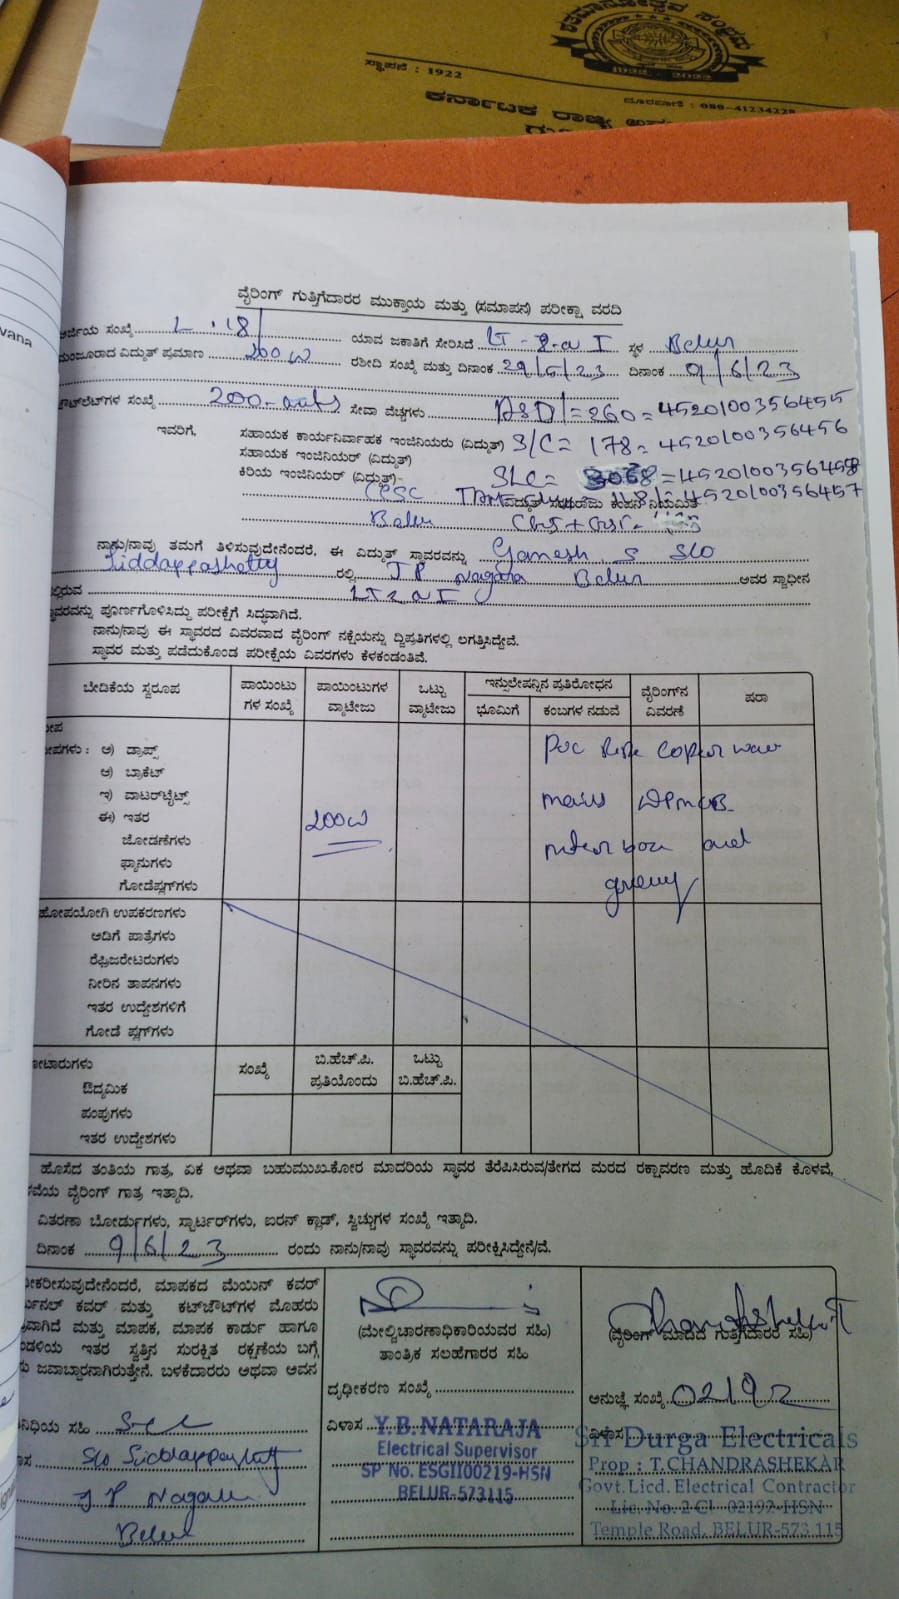 ಶತಮಾನೋತ್ಸವ ಸಂಭ್ರಮ
1922 - 2022
ಸ್ಥಾಪನೆ : 1922
ದೂರವಾಣಿ : 080-41234228
ಕರ್ನಾಟಕ ರಾಜ್ಯ
vana
ವೈರಿಂಗ್ ಗುತ್ತಿಗೆದಾರರ ಮುಕ್ತಾಯ ಮತ್ತು (ಸಮಾಪನ) ಪರೀಕ್ಷಾ ವರದಿ
ಅರ್ಜಿಯ ಸಂಖ್ಯೆ L.18 ಯಾವ ಜಕಾತಿಗೆ ಸೇರಿಸಿದೆ LT-2-a I ಸ್ಥಳ Belur
ಮಂಜೂರಾದ ವಿದ್ಯುತ್ ಪ್ರಮಾಣ 200 W ರಶೀದಿ ಸಂಖ್ಯೆ ಮತ್ತು ದಿನಾಂಕ 29/5/23 ದಿನಾಂಕ 9/6/23
ಸಂಖ್ಯೆ 200- ಸೇವಾ ವೆಚ್ಚಗಳು ASD/=260=4520100356455
ಇವರಿಗೆ, ಸಹಾಯಕ ಕಾರ್ಯನಿರ್ವಾಹಕ ಇಂಜಿನಿಯರು (ವಿದ್ಯುತ್) S/C= 178=4520100356456
ಸಹಾಯಕ ಇಂಜಿನಿಯರ್ (ವಿದ್ಯುತ್)
ಕಿರಿಯ ಇಂಜಿನಿಯರ್ (ವಿದ್ಯುತ್) SLC= =4520100356458
CESC ವಿದ್ಯುತ್ ಸರಬರಾಜು ಕಂಪನಿ ನಿಯಮಿತ 4520100356457
Belur
ನಾನು/ನಾವು ತಮಗೆ ತಿಳಿಸುವುದೇನೆಂದರೆ, ಈ ವಿದ್ಯುತ್ ಸ್ಥಾವರವನ್ನು Ganesh S S/O
Siddappashetty ರಲ್ಲಿ J P Nagara Belur ಅವರ ಸ್ವಾಧೀನ
ಲ್ಲಿರುವ LT 2 a I
ಸ್ಥಾವರವನ್ನು ಪೂರ್ಣಗೊಳಿಸಿದ್ದು ಪರೀಕ್ಷೆಗೆ ಸಿದ್ಧವಾಗಿದೆ.
ನಾನು/ನಾವು ಈ ಸ್ಥಾವರದ ವಿವರವಾದ ವೈರಿಂಗ್ ನಕ್ಷೆಯನ್ನು ದ್ವಿಪ್ರತಿಗಳಲ್ಲಿ ಲಗತ್ತಿಸಿದ್ದೇವೆ.
ಸ್ಥಾವರ ಮತ್ತು ಪಡೆದುಕೊಂಡ ಪರೀಕ್ಷೆಯ ವಿವರಗಳು ಕೆಳಕಂಡಂತಿವೆ.
ಬೇಡಿಕೆಯ ಸ್ವರೂಪ ಪಾಯಿಂಟು ಗಳ ಸಂಖ್ಯೆ ಪಾಯಿಂಟುಗಳ ವ್ಯಾಟೇಜು ಒಟ್ಟು ವ್ಯಾಟೇಜು ಇನ್ಸುಲೇಷನ್ನಿನ ಪ್ರತಿರೋಧನ ವೈರಿಂಗ್‌ನ ವಿವರಣೆ ಷರಾ
ಭೂಮಿಗೆ ಕಂಬಗಳ ನಡುವೆ
ದೀಪ
ದೀಪಗಳು : ಅ) ಡ್ರಾಪ್ಸ್ PVC Pipe Copper
ಆ) ಬ್ರಾಕೆಟ್
ಇ) ವಾಟರ್‌ಟೈಟ್ಸ್ DPMCB
ಈ) ಇತರ 200W
ಜೋಡಣೆಗಳು meter box and
ಫ್ಯಾನುಗಳು
ಗೋಡೆಪ್ಲಗ್‌ಗಳು
ಗೃಹೋಪಯೋಗಿ ಉಪಕರಣಗಳು
ಅಡಿಗೆ ಪಾತ್ರೆಗಳು
ರೆಫ್ರಿಜರೇಟರುಗಳು
ನೀರಿನ ತಾಪನಗಳು
ಇತರ ಉದ್ದೇಶಗಳಿಗೆ
ಗೋಡೆ ಪ್ಲಗ್‌ಗಳು
ಮೋಟಾರುಗಳು ಸಂಖ್ಯೆ ಬಿ.ಹೆಚ್.ಪಿ. ಪ್ರತಿಯೊಂದು ಒಟ್ಟು ಬಿ.ಹೆಚ್.ಪಿ.
ಔದ್ಯಮಿಕ
ಪಂಪುಗಳು
ಇತರ ಉದ್ದೇಶಗಳು
ಹೊಸೆದ ತಂತಿಯ ಗಾತ್ರ, ಏಕ ಅಥವಾ ಬಹುಮುಖ-ಕೋರ ಮಾದರಿಯ ಸ್ಥಾವರ ತೆರೆಪಿಸಿರುವ/ತೇಗದ ಮರದ ರಕ್ಷಾವರಣ ಮತ್ತು ಹೊದಿಕೆ ಕೊಳವೆ,
ಸೇವೆಯ ವೈರಿಂಗ್ ಗಾತ್ರ ಇತ್ಯಾದಿ.
ವಿತರಣಾ ಬೋರ್ಡುಗಳು, ಸ್ಟಾರ್ಟರ್‌ಗಳು, ಐರನ್ ಕ್ಲಾಡ್, ಸ್ವಿಚ್ಚುಗಳ ಸಂಖ್ಯೆ ಇತ್ಯಾದಿ.
ದಿನಾಂಕ 9/6/23 ರಂದು ನಾನು/ನಾವು ಸ್ಥಾವರವನ್ನು ಪರೀಕ್ಷಿಸಿದ್ದೇನೆ/ವೆ.
ಕರಿಸುವುದೇನೆಂದರೆ, ಮಾಪಕದ ಮೆಯಿನ್ ಕವರ್
ರ್ಮಿನಲ್ ಕವರ್ ಮತ್ತು ಕಟ್‌ಔಟ್‌ಗಳ ಮೊಹರು
ವಾಗಿದೆ ಮತ್ತು ಮಾಪಕ, ಮಾಪಕ ಕಾರ್ಡು ಹಾಗೂ
ಮಂಡಳಿಯ ಇತರ ಸ್ವತ್ತಿನ ಸುರಕ್ಷಿತ ರಕ್ಷಣೆಯ ಬಗ್ಗೆ
ಜವಾಬ್ದಾರನಾಗಿರುತ್ತೇನೆ. ಬಳಕೆದಾರರು ಅಥವಾ ಅವನ
ನಿಧಿಯ ಸಹಿ
S/o Siddappashetty
J P Nagara
Belur
(ಮೇಲ್ವಿಚಾರಣಾಧಿಕಾರಿಯವರ ಸಹಿ)
ತಾಂತ್ರಿಕ ಸಲಹೆಗಾರರ ಸಹಿ
ದೃಢೀಕರಣ ಸಂಖ್ಯೆ
ವಿಳಾಸ Y.B.NATARAJA
Electrical Supervisor
SP No. ESGII00219-HSN
BELUR-573115
(ವೈರಿಂಗ್ ಮಾಡಿದ ಗುತ್ತಿಗೆದಾರರ ಸಹಿ)
ಅನುಜ್ಞೆ ಸಂಖ್ಯೆ 02192
ವಿಳಾಸ
Sri Durga Electricals
Prop : T.CHANDRASHEKAR
Govt.Licd. Electrical Contractor
Lic. No. 2 Cl - 02192-HSN
Temple Road, BELUR-573 115